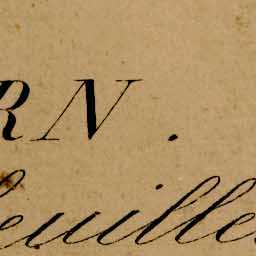 RN.
euilles